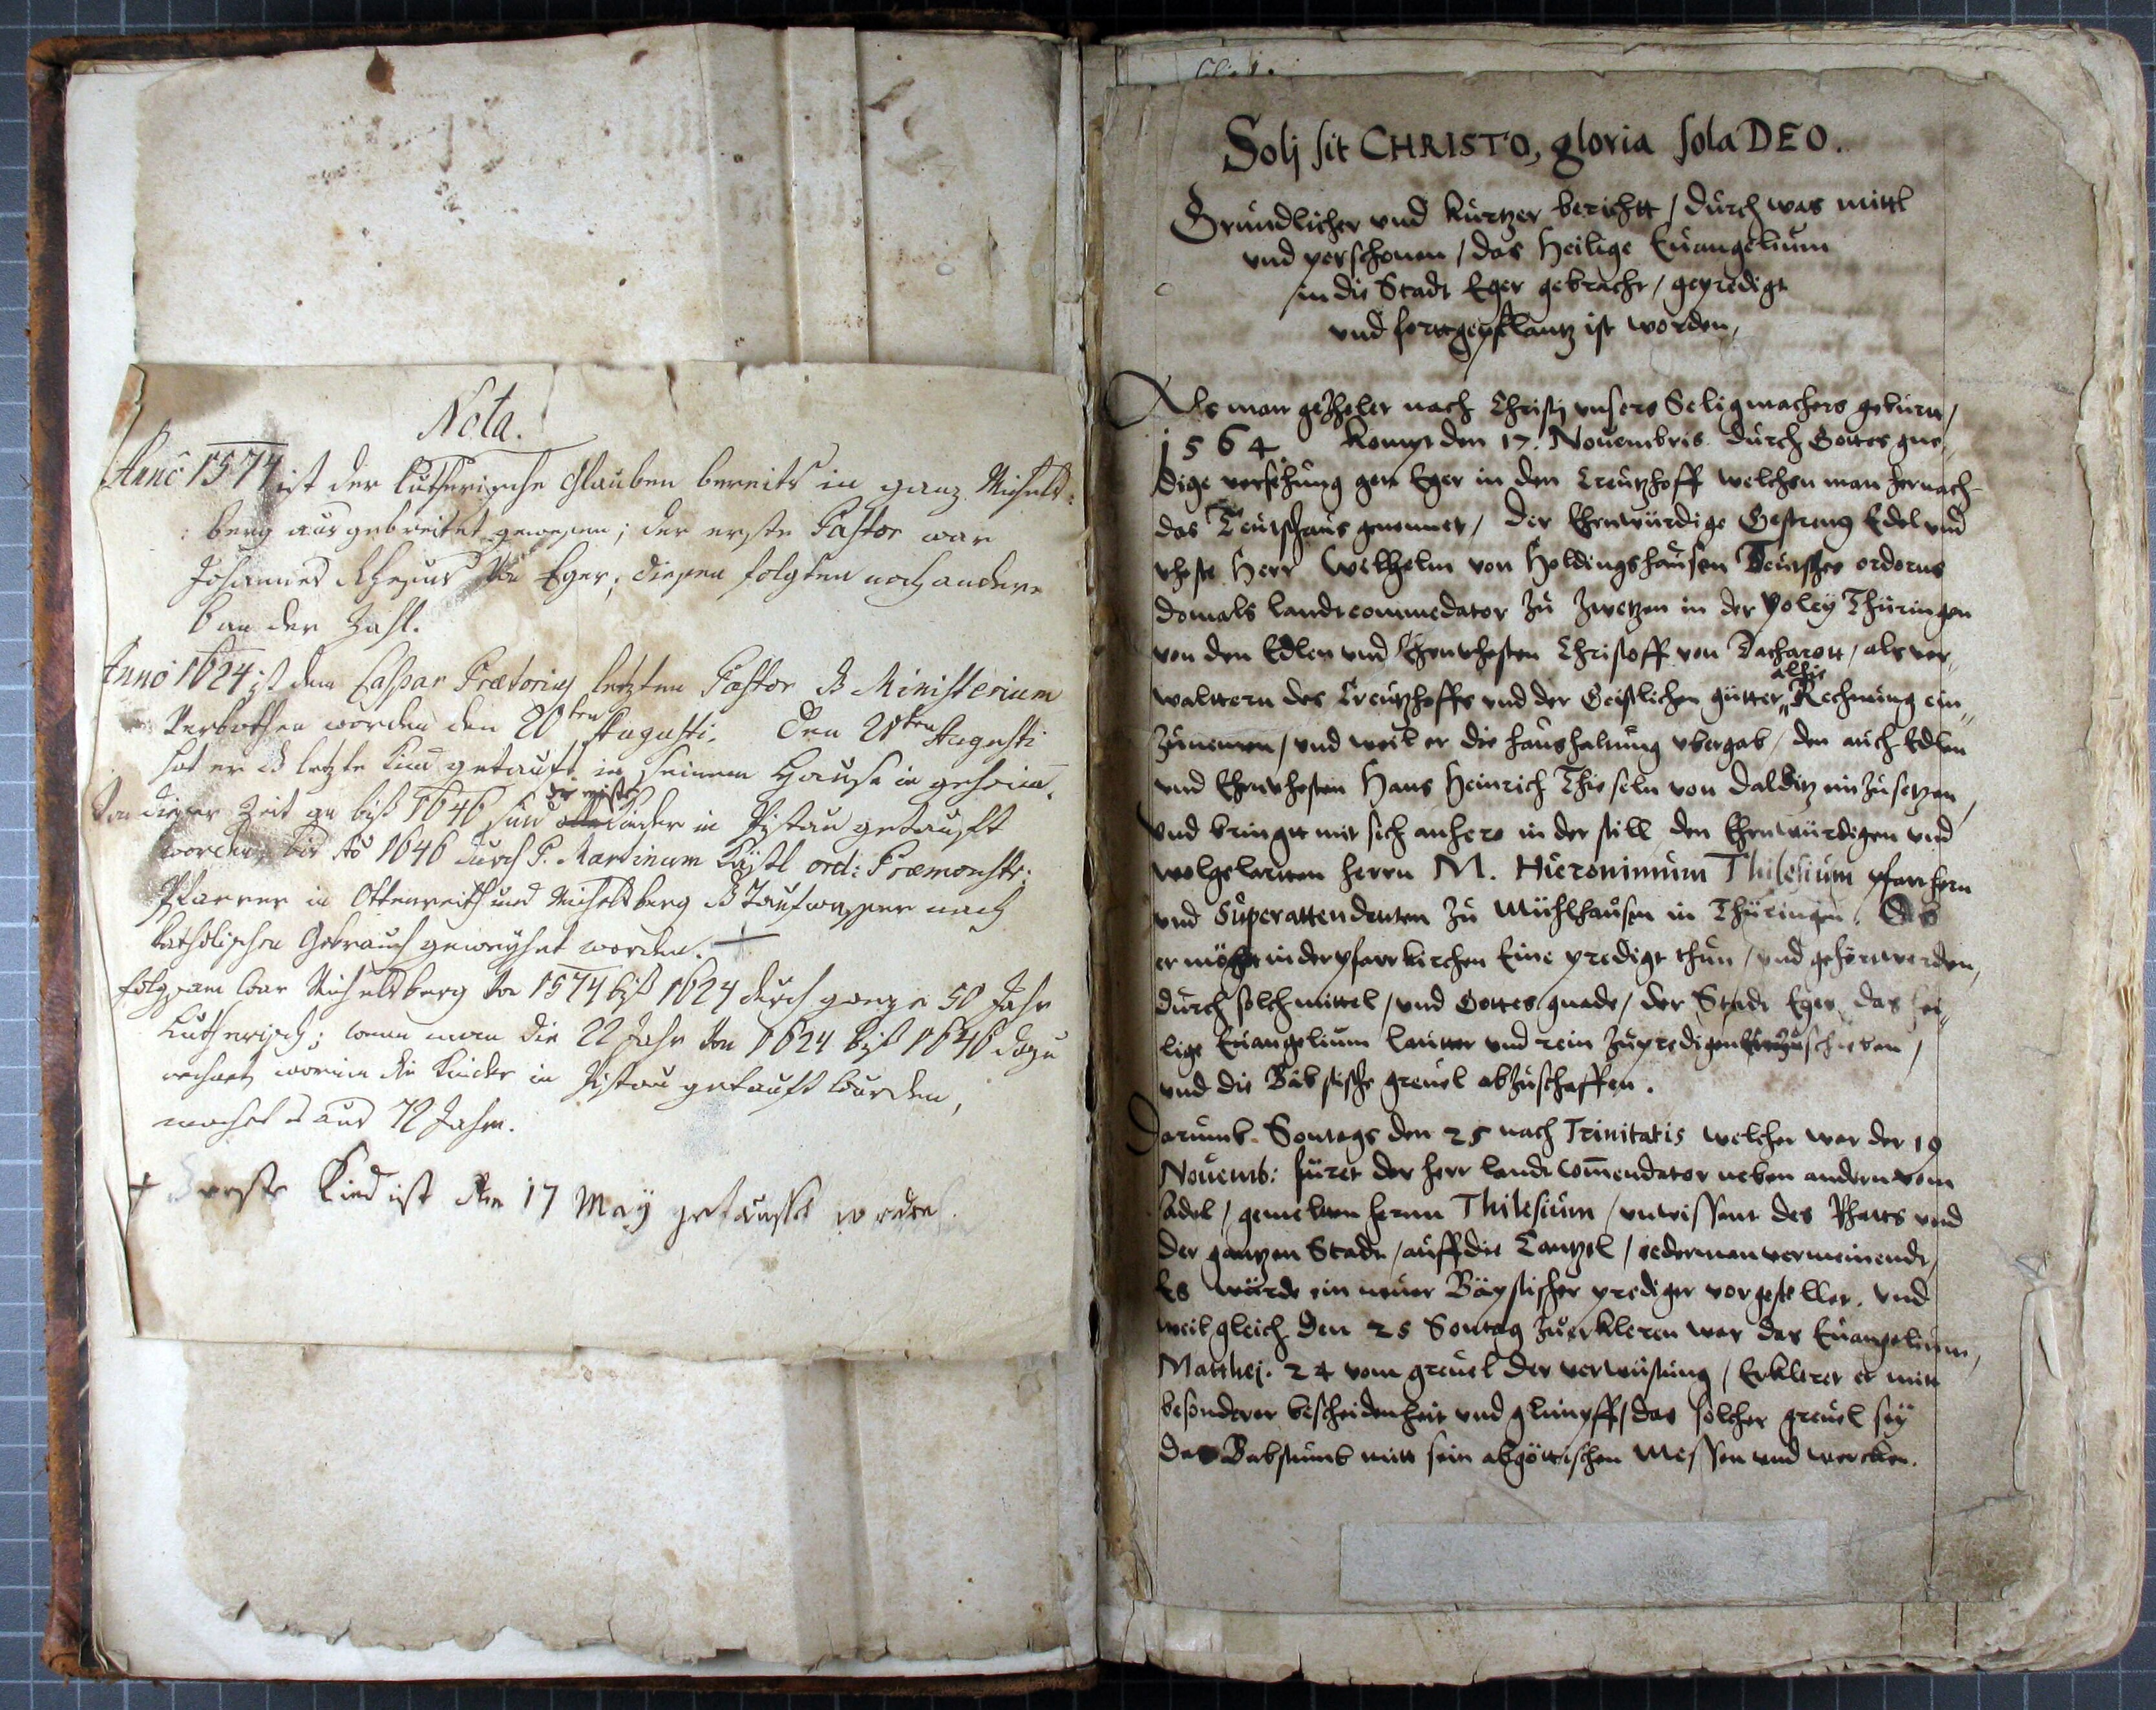 Nota.
Anno 1574 ist der Lutherische Glauben bereits in ganz Michels-
berg ausgebreitet gewesen; der erste Pastor war
Johannes Rhesus von Eger; diesen folgten noch andere
6 an der Zahl.
Anno 1624 ist dem Caspar Praetorius letzten Pastor Ministerium
verbothen worden den 20ten Augusti. Den 21ten Augusti
hat er letzte Kind getauft in seinem Hause in geheim.
Von dieser Zeit an biß 1646 sind die meiste Kinder in Pistau getauft
worden, bis Aõ 1646 durch P. Martinum ord: Praemonstr:
Pfarrer in Ottenreith und Michelsberg Taufwasser nach
katholischen Gebrauch geweyhet worden. +
Folgsam war Michelsberg von 1574 biß 1624 durch ganze 50 Jahr
Lutherisch; wenn man die 22 Jahr von 1624 biß 1646 dazu
rechnet, worinn die Kinder in Pistau getauft wurden,
macht es aus 72 Jahre.
+ erste Kind ist den 17 May getaufft worden.
Solj sit CHRISTO, gloria sola DEO.
Gründlicher vnd kurtzer berichtt / durch was mittl
vnd perschonen / das Heilige Euangelium
in die Stadt Eger gebracht / gepredigt
vnd fortgepflantz ist worden,
Als man gezheler nach Christj vnsers Seligmachers geburtt,
1564. kompt den 17. Nouembris durch Gottes gne-
dige versehung gen Eger in den Creutzhoff welchen man hernach
das Teutschaus genennet / der Ehrwürdige Gestreng Edel vnd
vheste Herr Welhelm von Holdingshausen Teutsches ordens
domals landtcommedator zu Zwetzen in der Poley Thüringen
von den Edlen vnd Ehrnvhesten Christoff von Dacharott / als ver-
walttern des Creutzhoffs vnd der Geistlichen gütter alhie Rechnung ein-
zunemen / vnd weil er die haushaltung vbergab / den auch Edlen
vnd Ehrnvhesten Hans Heinrich Thieseln von Dalditz einzusetzen,
Vnd bringtt mit sich anhero in der still den Ehrwürdigen vnd
wolgelartten Herrn M. Hieronimum Thilesium pfarrhern
vnd Superattendenten zu Mühlhausen in Thüringen. Das
er möcht in der pfarrkirchen Eine predigt thun / vnd gehört werden,
durch solch mittel / vnd Gottes gnade / der Stadt Eger das hei-
lige Euangelium lautter vnd rein zupredigen schieben /
vnd die Bäbstische greuel abzuschaffen.
Darumb Sontags den 25 nach Trinitatis welcher war der 19
Nouemb: füret der herr landt Com̄endator neben andern vom
adel / gemelten herrn Thilesium / vnwissent des Rhatts vnd
der gantzen Stadt / auff die Cantzel / iederman vermeinendt /
Es würde ein neuer Bäpstischer prediger vorgestellet. Vnd
weil gleich den 25 Sontag zuerkleren war das Euangelium,
Matthej. 24 vom greuel der verwüstung / Erkleret er mitt
besonderer bescheidenheit vnd glimpff / das solcher greuel sey
das Babstumb mitt sein abgöttischen Messen vnd wercken.